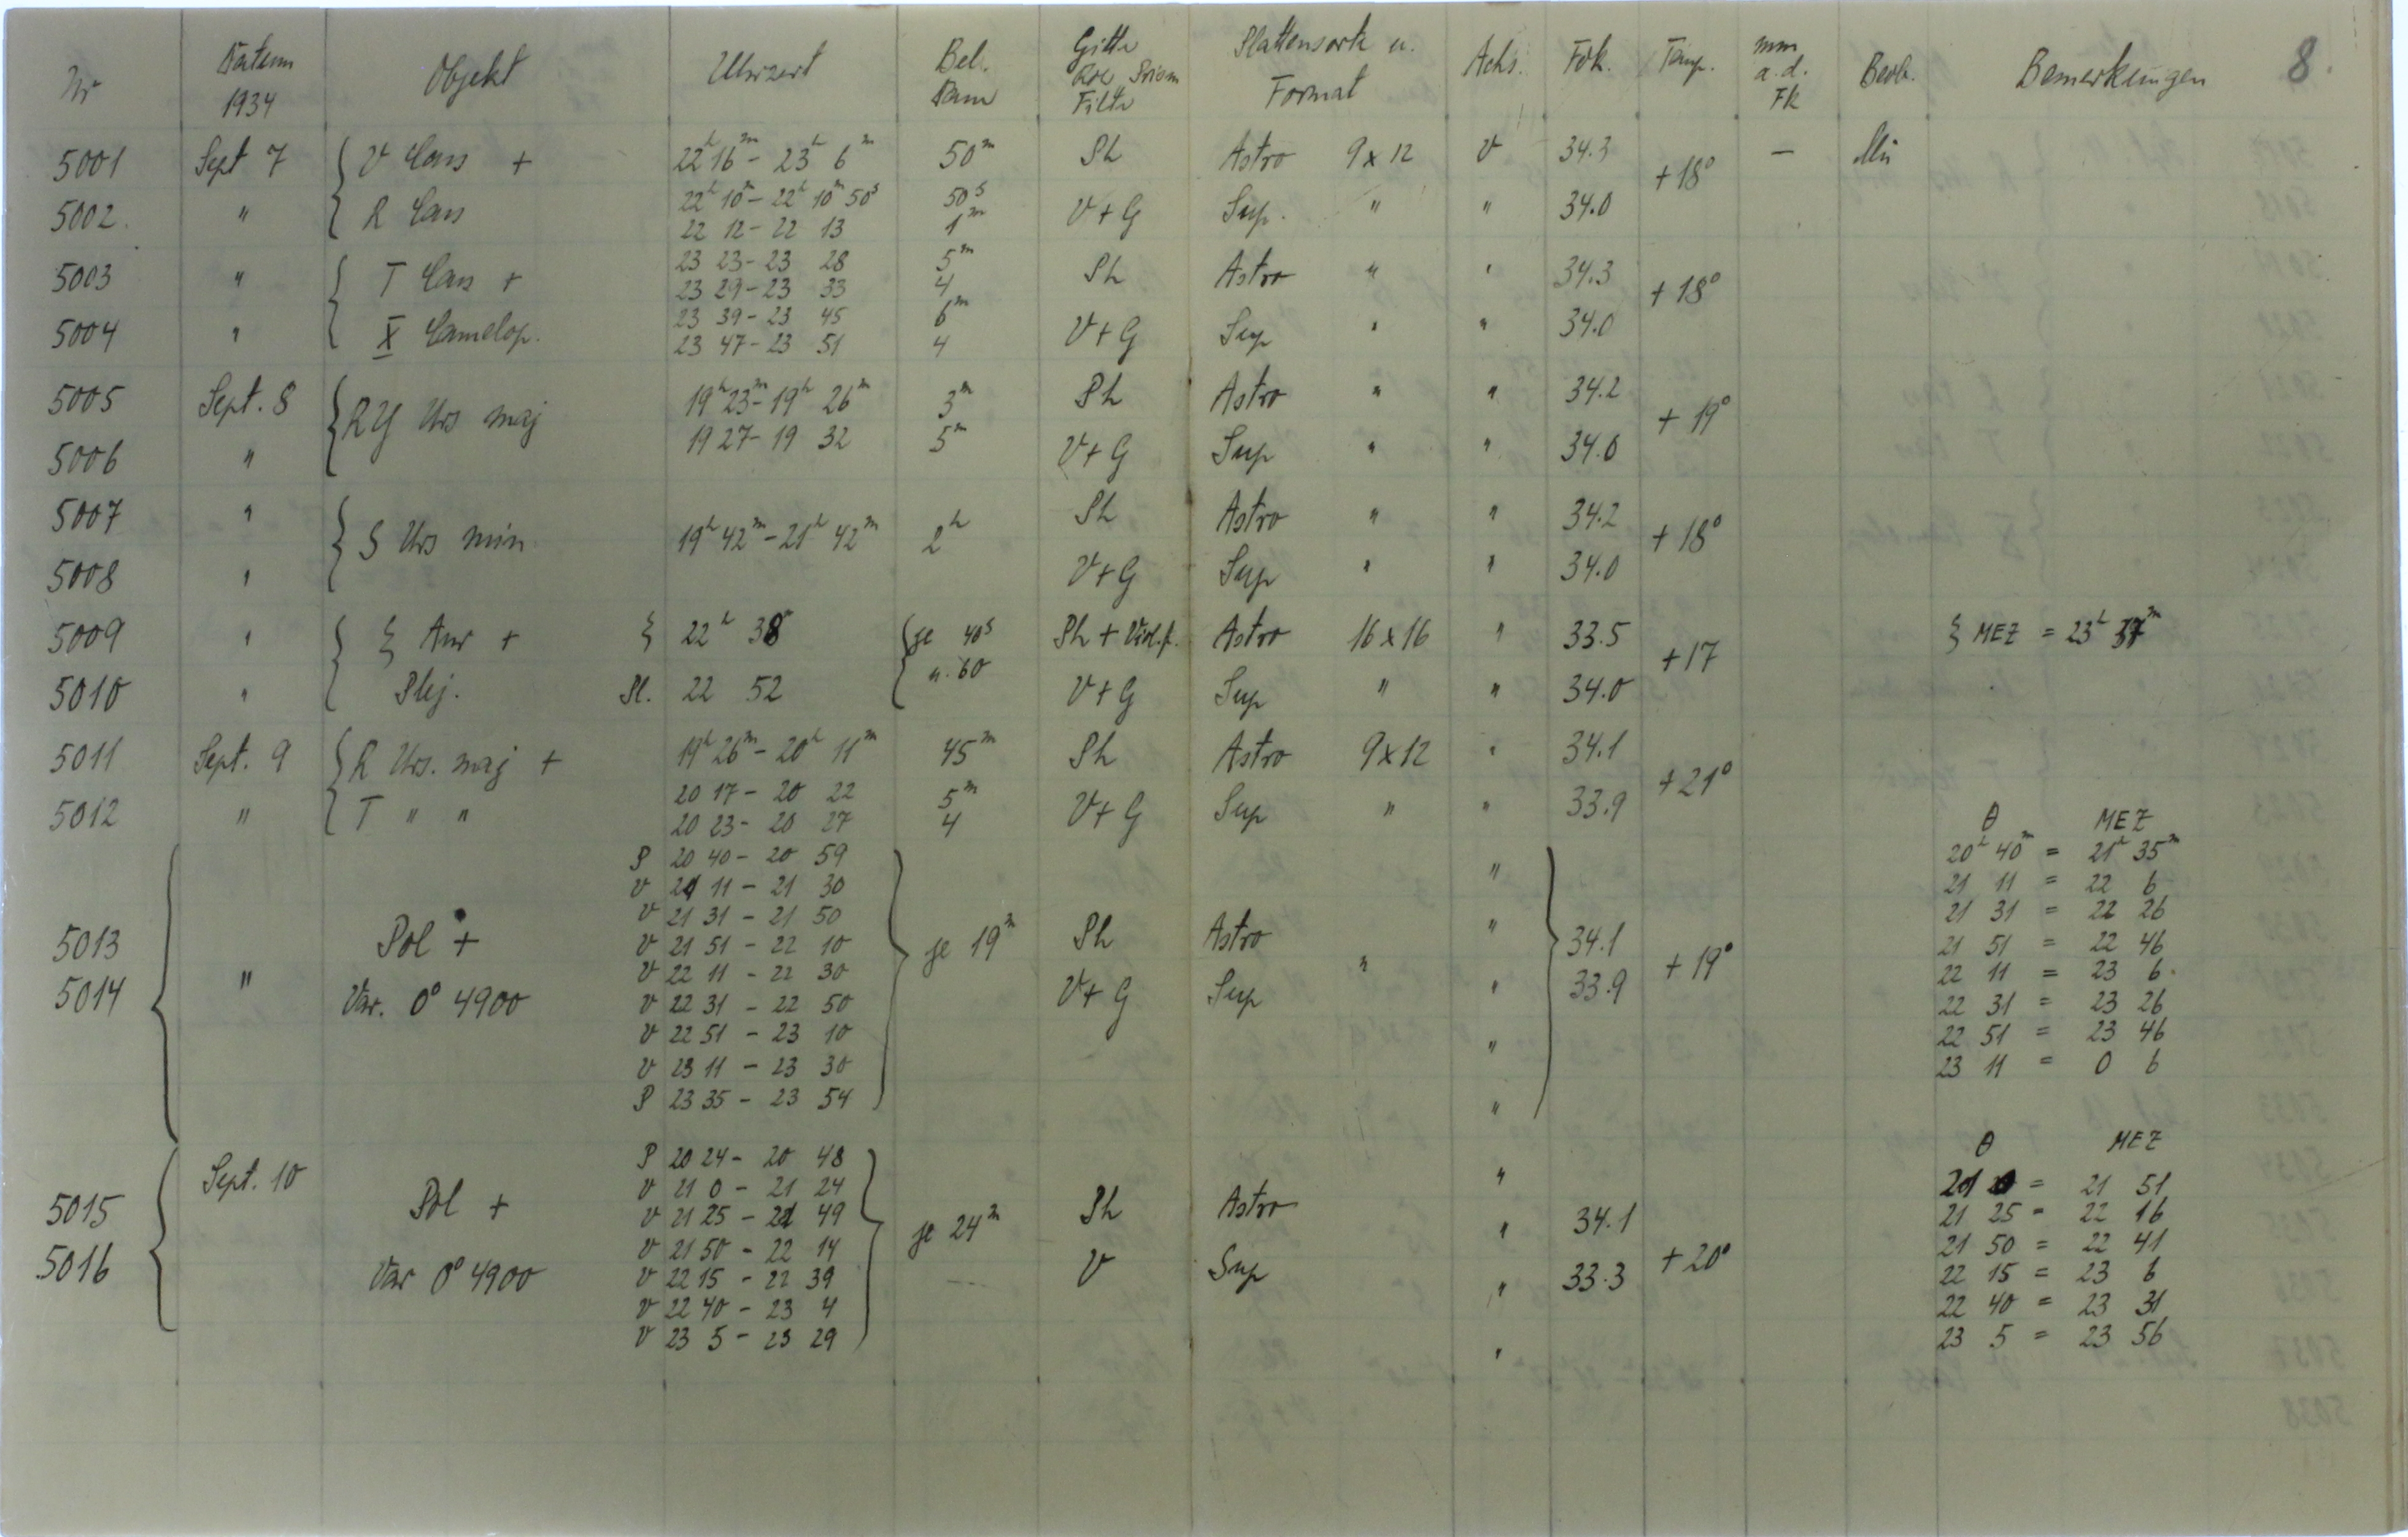 Nr Datum 1934 Objekt Uhrzeit Bel. Dau Gitter Prism Filter Plattensorte u. Format Achs. Fok. Temp. mm a.d. FK Beob. Bemerkungen 8.
5001 Sept 7 { V Cass + 22h 16m - 23h 6m 50m Ph Astro 9 x 12 V 34.3 +18° —
5002. " R Cass 22h 10m - 22h 10m 50s 50s V+G Sup. " " 34.0
22 12 - 22 13 1m
5003 " { T Cass + 23 23 - 23 28 5m Ph Astro " " 34.3 +18°
23 29 - 23 33 4
5004 " X Camelop. 23 39 - 23 45 6m V+G Sup " " 34.0
23 47 - 23 51 4
5005 Sept. 8 { RY Urs maj 19h 23m - 19h 26m 3m Ph Astro " " 34.2 +19°
5006 " 19 27 - 19 32 5m V+G Sup " " 34.0
5007 " { S Urs min 19h 42m - 21h 42m 2h Ph Astro " " 34.2 +18°
5008 " V+G Sup " " 34.0
5009 " { ξ Aur + ξ 22h 38 { je 40s Ph + Viol.f. Astro 16 x 16 " 33.5 +17 ξ MEZ = 23h 37m
5010 " Plej. Pl. 22 52 u. 60 V+G Sup " " 34.0
5011 Sept. 9 { R Urs. maj + 19h 26m - 20h 11m 45m Ph Astro 9 x 12 " 34.1 +21°
5012 " T " " 20 17 - 20 22 5m V+G Sup " " 33.9
20 23 - 20 27 4 θ MEZ
P 20 40 - 20 59 " 20h 40m = 21h 35m
V 21 11 - 21 30 21 11 = 22 6
V 21 31 - 21 50 " 21 31 = 22 26
5013 Pol + V 21 51 - 22 10 je 19m Ph Astro " 34.1 +19° 21 51 = 22 46
V 22 11 - 22 30 22 11 = 23 6.
5014 " Var. 0° 4900 V 22 31 - 22 50 V+G Sup " 33.9 22 31 = 23 26
V 22 51 - 23 10 " 22 51 = 23 46
V 23 11 - 23 30 23 11 = 0 6
P 23 35 - 23 54 "
Sept. 10 P 20 24 - 20 48 " θ MEZ
V 21 0 - 21 24 21 0 = 21 51
5015 Pol + V 21 25 - 21 49 je 24m Ph Astro " 34.1 +20° 21 25 = 22 16
V 21 50 - 22 14 21 50 = 22 41
5016 Var 0° 4900 V 22 15 - 22 39 V Sup " 33.3 22 15 = 23 6
V 22 40 - 23 4 22 40 = 23 31
V 23 5 - 23 29 " 23 5 = 23 56